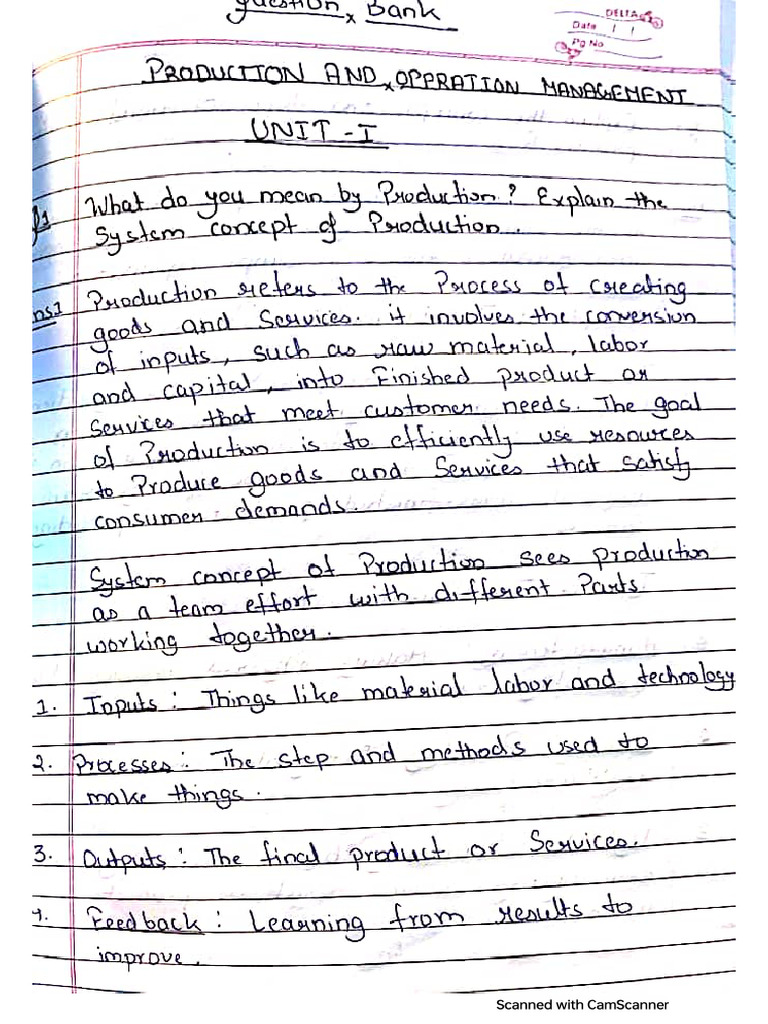 Question Bank
DELTA
Date / /
Pg No
PRODUCTION AND OPERATION MANAGEMENT
UNIT - I
Q1 What do you mean by Production? Explain the
System concept of Production.
Ans1 Production refers to the Process of creating
goods and Services. it involves the conversion
of inputs, such as raw material, labor
and capital, into Finished product or
Services that meet customer needs. The goal
of Production is to efficiently use resources
to Produce goods and Services that satisfy
consumer demands.
System concept of Production sees production
as a team effort with different Parts
working together.
1. Inputs : Things like material labor and technology
2. Processes : The step and methods used to
make things.
3. Outputs : The final product or Services.
4. Feedback : Learning from results to
improve.
Scanned with CamScanner